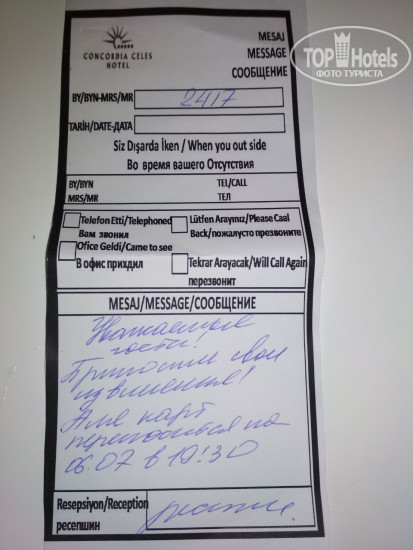 CONCORDIA CELES
HOTEL
MESAJ
MESSAGE
СООБЩЕНИЕ
TOP Hotels
ФОТО ТУРИСТА
BY/BYN-MRS/MR 2417
TARİH/DATE-ДАТА
Siz Dışarda İken / When you out side
Во время вашего Отсутствия
BY/BYN TEL/CALL
MRS/MR ТЕЛ
Telefon Etti/Telephoned
Вам звонил
Lütfen Arayınız/Please Caal
Back/пожалусто презвоните
Ofice Geldi/Came to see
В офис прихдил
Tekrar Arayacak/Will Call Again
перезвонит
MESAJ/MESSAGE/СООБЩЕНИЕ
Уважаемые
гости!
Приносим свои
извинения!
А ля карт
переносится на
06.07 в 19:30
Resepsiyon/Reception
ресепшин